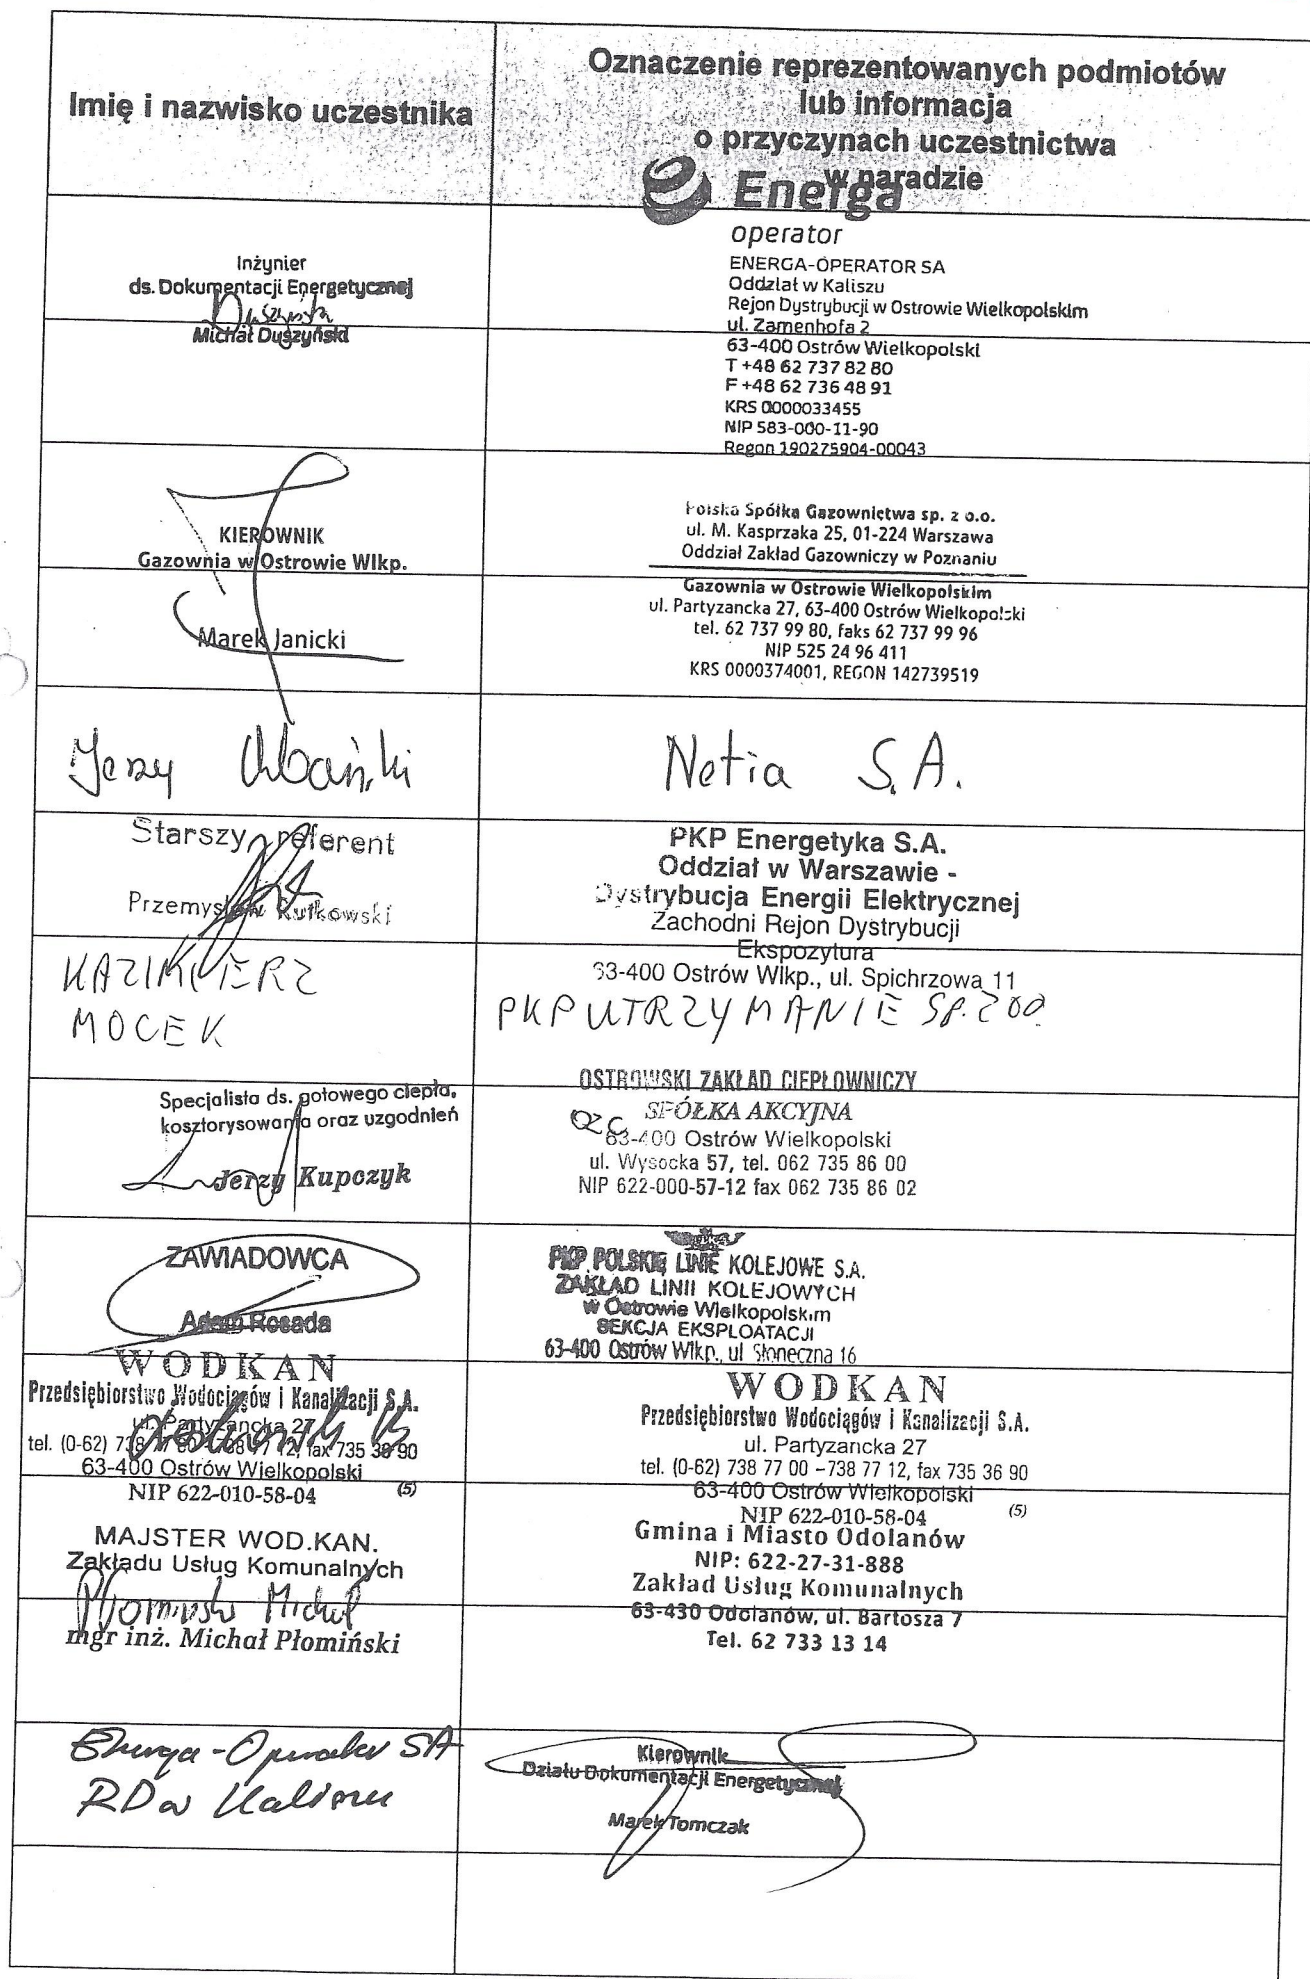 Imię i nazwisko uczestnika
Oznaczenie reprezentowanych podmiotów
lub informacja
o przyczynach uczestnictwa
w naradzie
Energa
operator
Inżynier
ds. Dokumentacji Energetycznej
Michał Duszyński
ENERGA-OPERATOR SA
Oddział w Kaliszu
Rejon Dystrybucji w Ostrowie Wielkopolskim
ul. Zamenhofa 2
63-400 Ostrów Wielkopolski
T +48 62 737 82 80
F +48 62 736 48 91
KRS 0000033455
NIP 583-000-11-90
Regon 190275904-00043
KIEROWNIK
Gazownia w Ostrowie Wlkp.
Marek Janicki
Polska Spółka Gazownictwa sp. z o.o.
ul. M. Kasprzaka 25, 01-224 Warszawa
Oddział Zakład Gazowniczy w Poznaniu
Gazownia w Ostrowie Wielkopolskim
ul. Partyzancka 27, 63-400 Ostrów Wielkopolski
tel. 62 737 99 80, faks 62 737 99 96
NIP 525 24 96 411
KRS 0000374001, REGON 142739519
Jerzy
Netia S.A.
Starszy referent
Przemysław Rutkowski
PKP Energetyka S.A.
Oddział w Warszawie -
Dystrybucja Energii Elektrycznej
Zachodni Rejon Dystrybucji
Ekspozytura
63-400 Ostrów Wlkp., ul. Spichrzowa 11
KAZIMIERZ
MOCEK
PKP UTRZYMANIE SP. Z OO.
Specjalista ds. gotowego ciepła,
kosztorysowania oraz uzgodnień
Jerzy Kupczyk
OSTROWSKI ZAKŁAD CIEPŁOWNICZY
SPÓŁKA AKCYJNA
OZC
63-400 Ostrów Wielkopolski
ul. Wysocka 57, tel. 062 735 86 00
NIP 622-000-57-12 fax 062 735 86 02
ZAWIADOWCA
Adam Rosada
PKP POLSKIE LINIE KOLEJOWE S.A.
ZAKŁAD LINII KOLEJOWYCH
w Ostrowie Wielkopolskim
SEKCJA EKSPLOATACJI
63-400 Ostrów Wlkp., ul Słoneczna 16
WODKAN
Przedsiębiorstwo Wodociągów i Kanalizacji S.A.
ul. Partyzancka 27
tel. (0-62) 738 77 00 -738 77 12, fax 735 36 90
63-400 Ostrów Wielkopolski
NIP 622-010-58-04 (5)
WODKAN
Przedsiębiorstwo Wodociągów i Kanalizacji S.A.
ul. Partyzancka 27
tel. (0-62) 738 77 00 –738 77 12, fax 735 36 90
63-400 Ostrów Wielkopolski
NIP 622-010-58-04 (5)
MAJSTER WOD.KAN.
Zakładu Usług Komunalnych
Płomiński Michał
mgr inż. Michał Płomiński
Gmina i Miasto Odolanów
NIP: 622-27-31-888
Zakład Usług Komunalnych
63-430 Odolanów, ul. Bartosza 7
Tel. 62 733 13 14
Energa-Operator SA
RD w Kaliszu
Kierownik
Działu Dokumentacji Energetycznej
Marek Tomczak